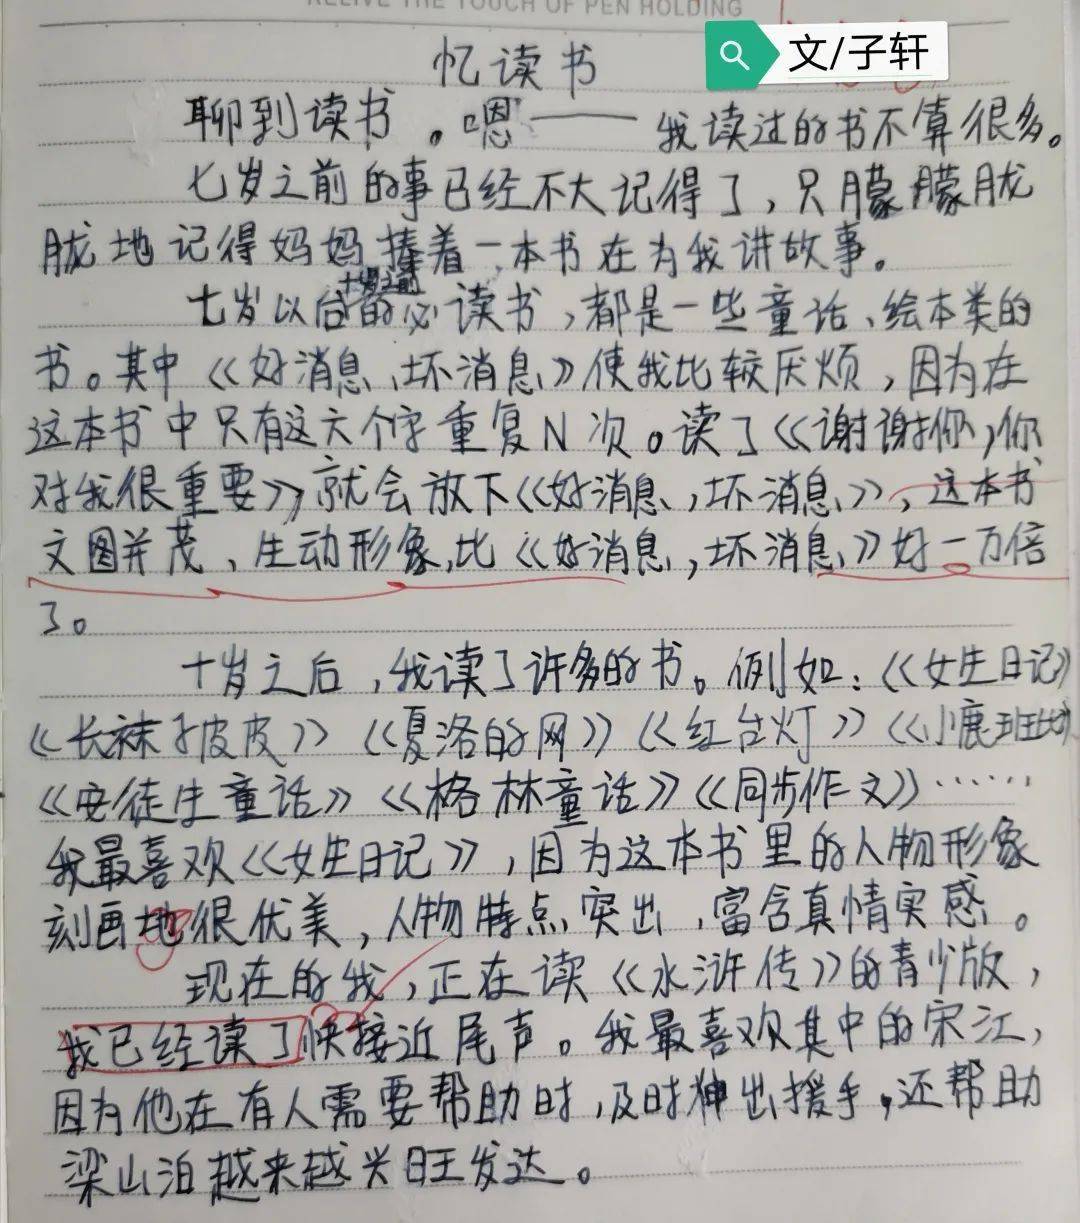 RELIVE THE TOUCH OF PEN HOLDING
文/子轩
忆读书
聊到读书。嗯——我读过的书不算很多。
七岁之前的事已经不大记得了，只朦朦胧
胧地记得妈妈捧着一本书在为我讲故事。
十岁之前
七岁以后的必读书，都是一些童话、绘本类的
书。其中《好消息，坏消息》使我比较厌烦，因为在
这本书中只有这六个字重复N次。读了《谢谢你，你
对我很重要》，就会放下《好消息，坏消息》，这本书
文图并茂、生动形象，比《好消息，坏消息》好一万倍
了。
十岁之后，我读了许多的书。例如：《女生日记》
《长袜子皮皮》《夏洛的网》《红台灯》《小鹿班比》
《安徒生童话》《格林童话》《同步作文》……
我最喜欢《女生日记》，因为这本书里的人物形象
刻画地很优美，人物特点突出，富含真情实感。
现在的我，正在读《水浒传》的青少版，
我已经读了快接近尾声。我最喜欢其中的宋江，
因为他在有人需要帮助时，及时伸出援手，还帮助
梁山泊越来越兴旺发达。